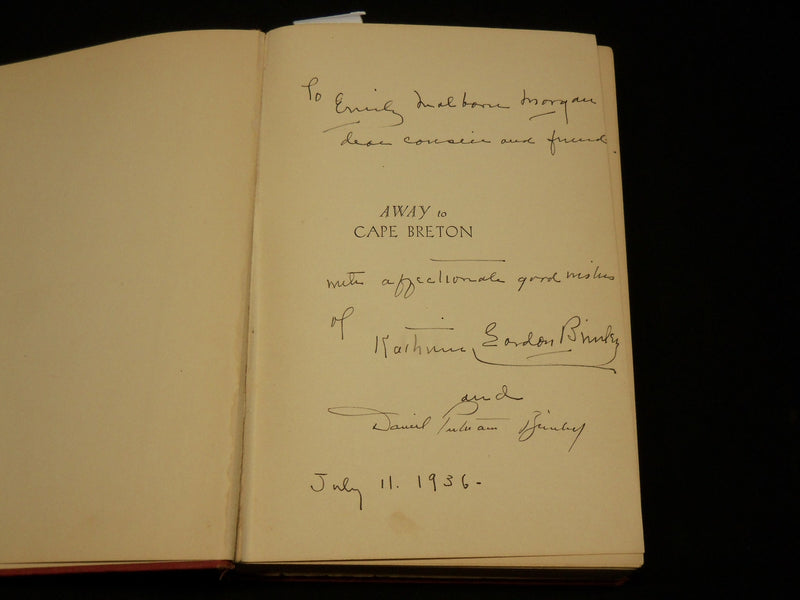 To Emily Malbone Morgan
dear cousin and friend.
AWAY to
CAPE BRETON
with affectionate good wishes
of
Katharine Gordon Brinley
and
Daniel Putnam Brinley
July 11. 1936-